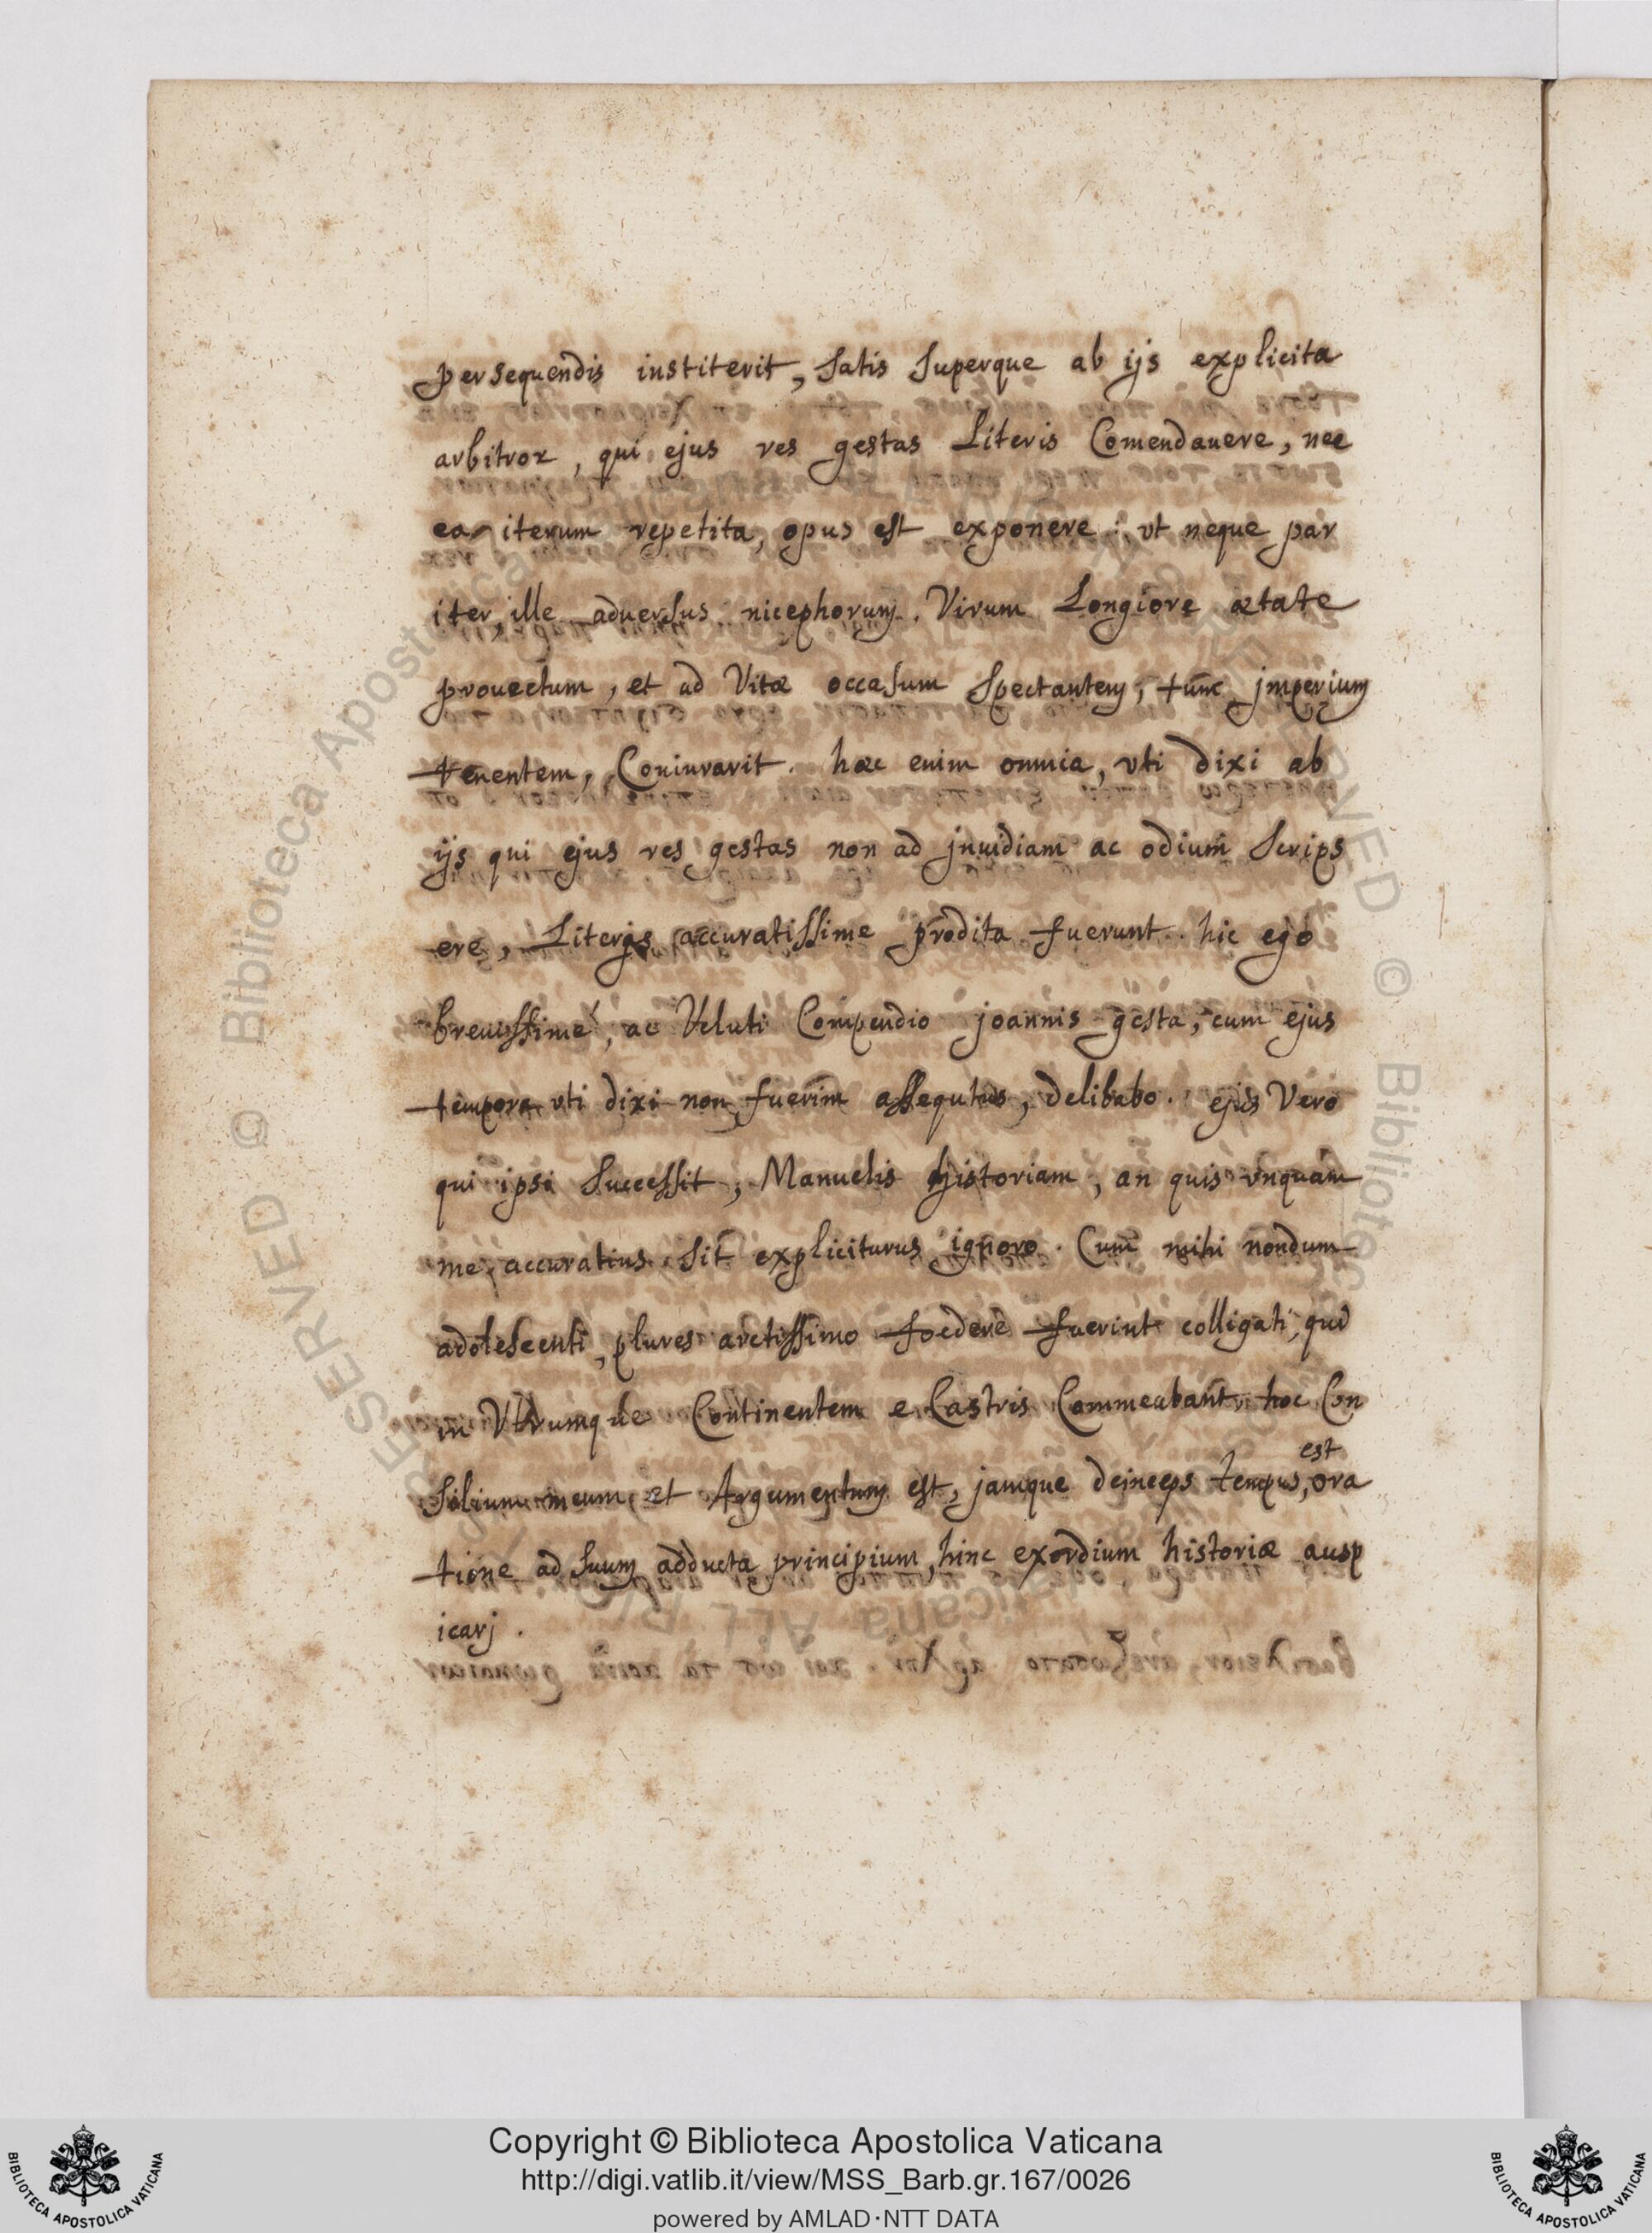 persequendis institerit, satis superque ab ijs explicita
arbitror, qui ejus res gestas Literis Comendauere, nec
ea iterum repetita, opus est exponere: vt neque par
iter ille aduersus nicephorum. Virum Longiore ætate
prouectum, et ad Vitæ occasum spectantem, tunc jmperium
tenentem, Coniuravit. hæc enim omnia, vti dixi ab
ijs qui ejus res gestas non ad jnuidiam ac odium scrips
ere, Literis accuratissime prodita fuerunt. hic ego
breuissime, ac Veluti Compendio joannis gesta, cum ejus
tempora vti dixi non fuerim assequtus, delibabo. ejus Vero
qui ipsi successit, Manuelis historiam, an quis vnquam
me accuratius sit expliciturus ignoro. Cum mihi nondum
adolescenti, plures arctissimo foedere fuerint colligati, qui
in Vtrumque Continentem e Castris Commeabant. hoc Con
silium meum et Argumentum est, jamque deinceps tempus, est ora
tione ad suum adducta principium, hinc exordium historiæ ausp
icarj.
Copyright © Biblioteca Apostolica Vaticana
http://digi.vatlib.it/view/MSS_Barb.gr.167/0026
powered by AMLAD·NTT DATA
BIBLIOTECA APOSTOLICA VATICANA
BIBLIOTECA APOSTOLICA VATICANA